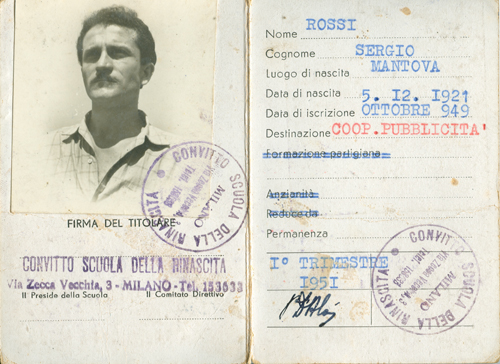 FIRMA DEL TITOLARE
CONVITTO SCUOLA DELLA RINASCITA
Via Zecca Vecchia, 3 - MILANO - Tel. 153633
Il Preside della Scuola Il Comitato Direttivo
CONVITTO SCUOLA DELLA RINASCITA
MILANO
Nome ROSSI
Cognome SERGIO
Luogo di nascita MANTOVA
Data di nascita 5. I2. I921
Data di iscrizione OTTOBRE 949
Destinazione COOP.PUBBLICITA'
Formazione partigiana
Anzianità
Reduce da
Permanenza
I° TRIMESTRE
I95I
CONVITTO SCUOLA DELLA RINASCITA
MILANO